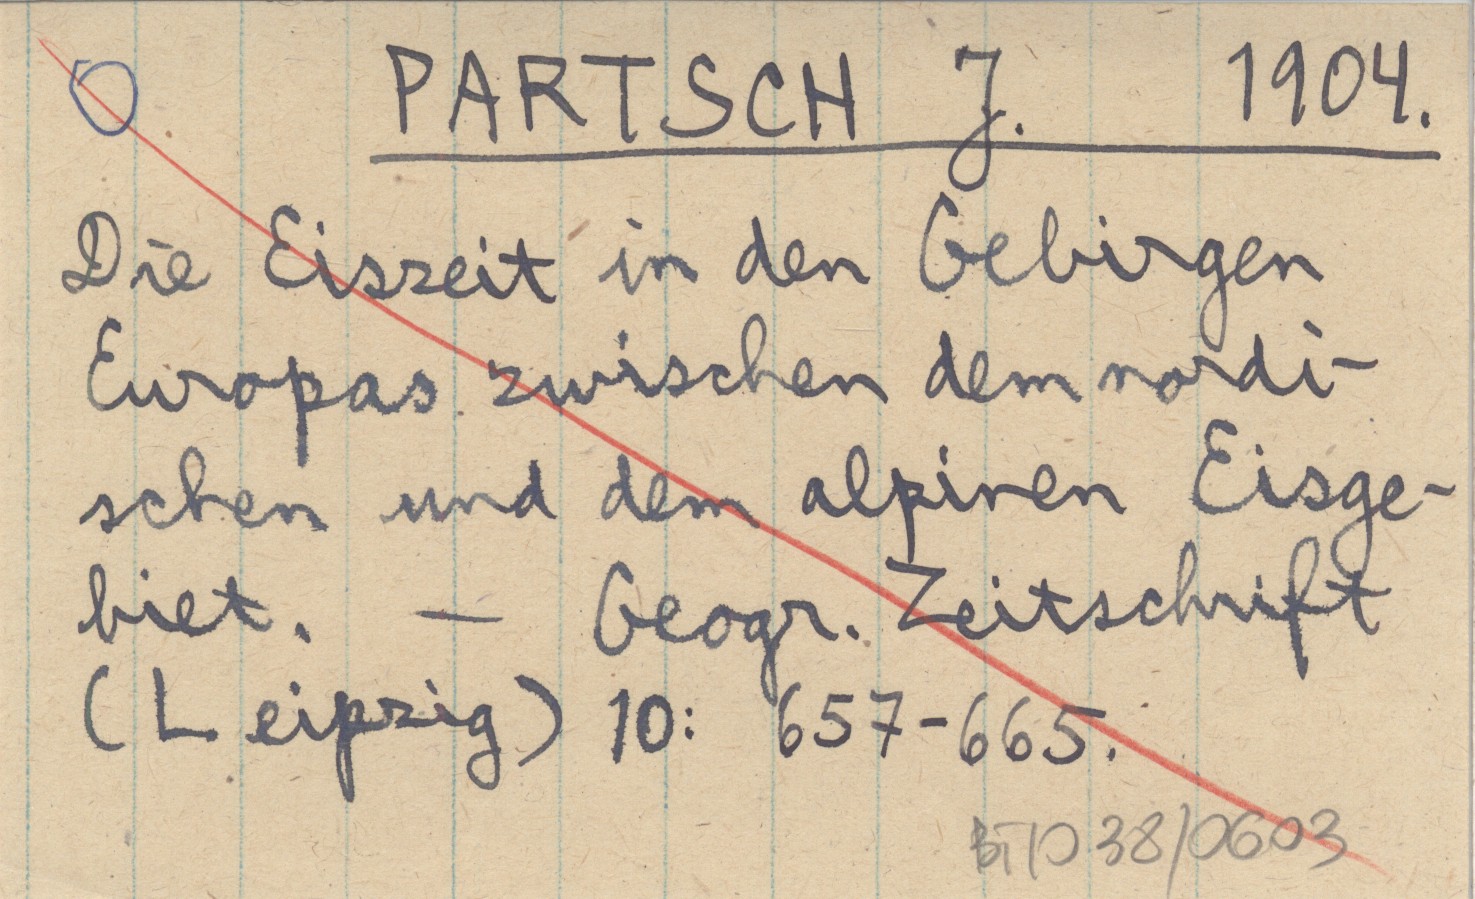 O PARTSCH J. 1904.
Die Eiszeit in den Gebirgen
Europas zwischen dem nordi-
schen und dem alpinen Eisge-
biet. — Geogr. Zeitschrift
(Leipzig) 10: 657-665.
38/0603